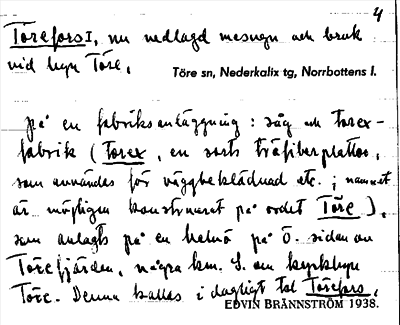 4
Törefors I, nu nedlagd masugn och bruk
vid byn Töre.
Töre sn, Nederkalix tg, Norrbottens l.
på en fabriksanläggning: såg och torex-
fabrik (Torex, en sorts träfiberplattor,
som användas för väggbeklädnad etc.; namnet
är möjligen konstruerat på ordet Töre),
som anlagts på en halvö på ö. sidan av
Törefjärden, några km. S. om kyrkbyn
Töre. Denna kallas i dagligt tal Törefors.
EDVIN BRÄNNSTRÖM 1938.